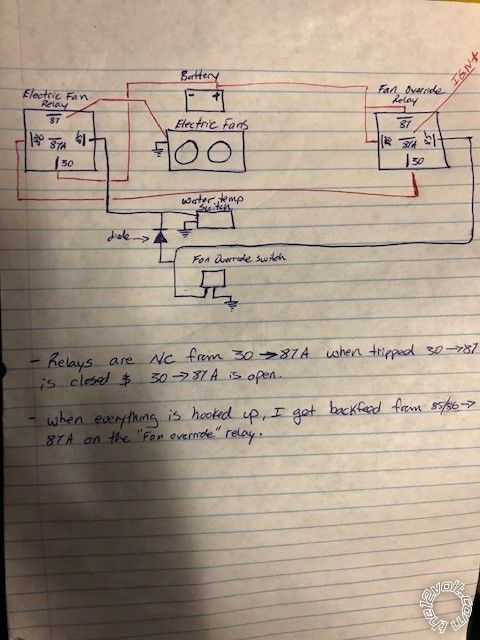 Battery
- +
IGN+
Electric Fan
Relay
87
86 87A 85
30
Electric Fans
Fan Override
Relay
87
86 87A 85
30
water temp
Switch
diode
Fan Override Switch
- Relays are NC from 30 → 87A when tripped 30 → 87
is closed $ 30 → 87A is open.
- when everything is hooked up, I get backfeed from 85/86 →
87A on the "Fan override" relay.
the12volt.com